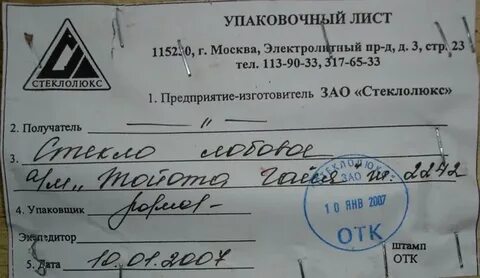 УПАКОВОЧНЫЙ ЛИСТ
115230, г. Москва, Электролитный пр-д, д. 3, стр. 23
тел. 113-90-33, 317-65-33
СТЕКЛОЛЮКС
1. Предприятие-изготовитель ЗАО «Стеклолюкс»
2. Получатель — „ —
3. Стекло лобовое
а/м „Тойота Гайя" т. 2242
4. Упаковщик
Экспедитор
5. Дата 10.01.2007
СТЕКЛОЛЮКС
ЗАО
10 ЯНВ 2007
ОТК
штамп
ОТК